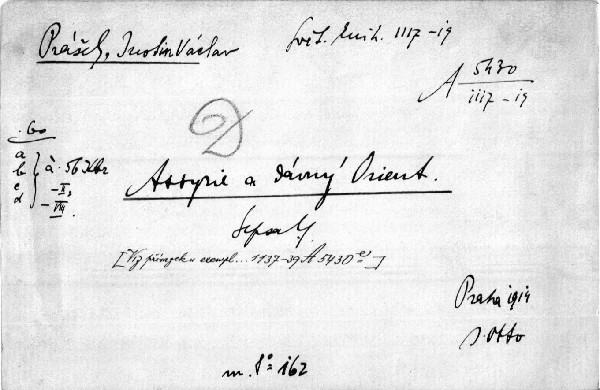 Prášek, Justin Václav
Svět. knih. 1117-19
A 5430
1117-19
D
.60
a
b
c
d
à. 56 K
-I,
-VIII.
Assyrie a dávný Orient.
Sepsal
[Viz přívazek u exempl... 1137-39 A 5430 e]
Praha 1914
J. Otto
m. 8° 162